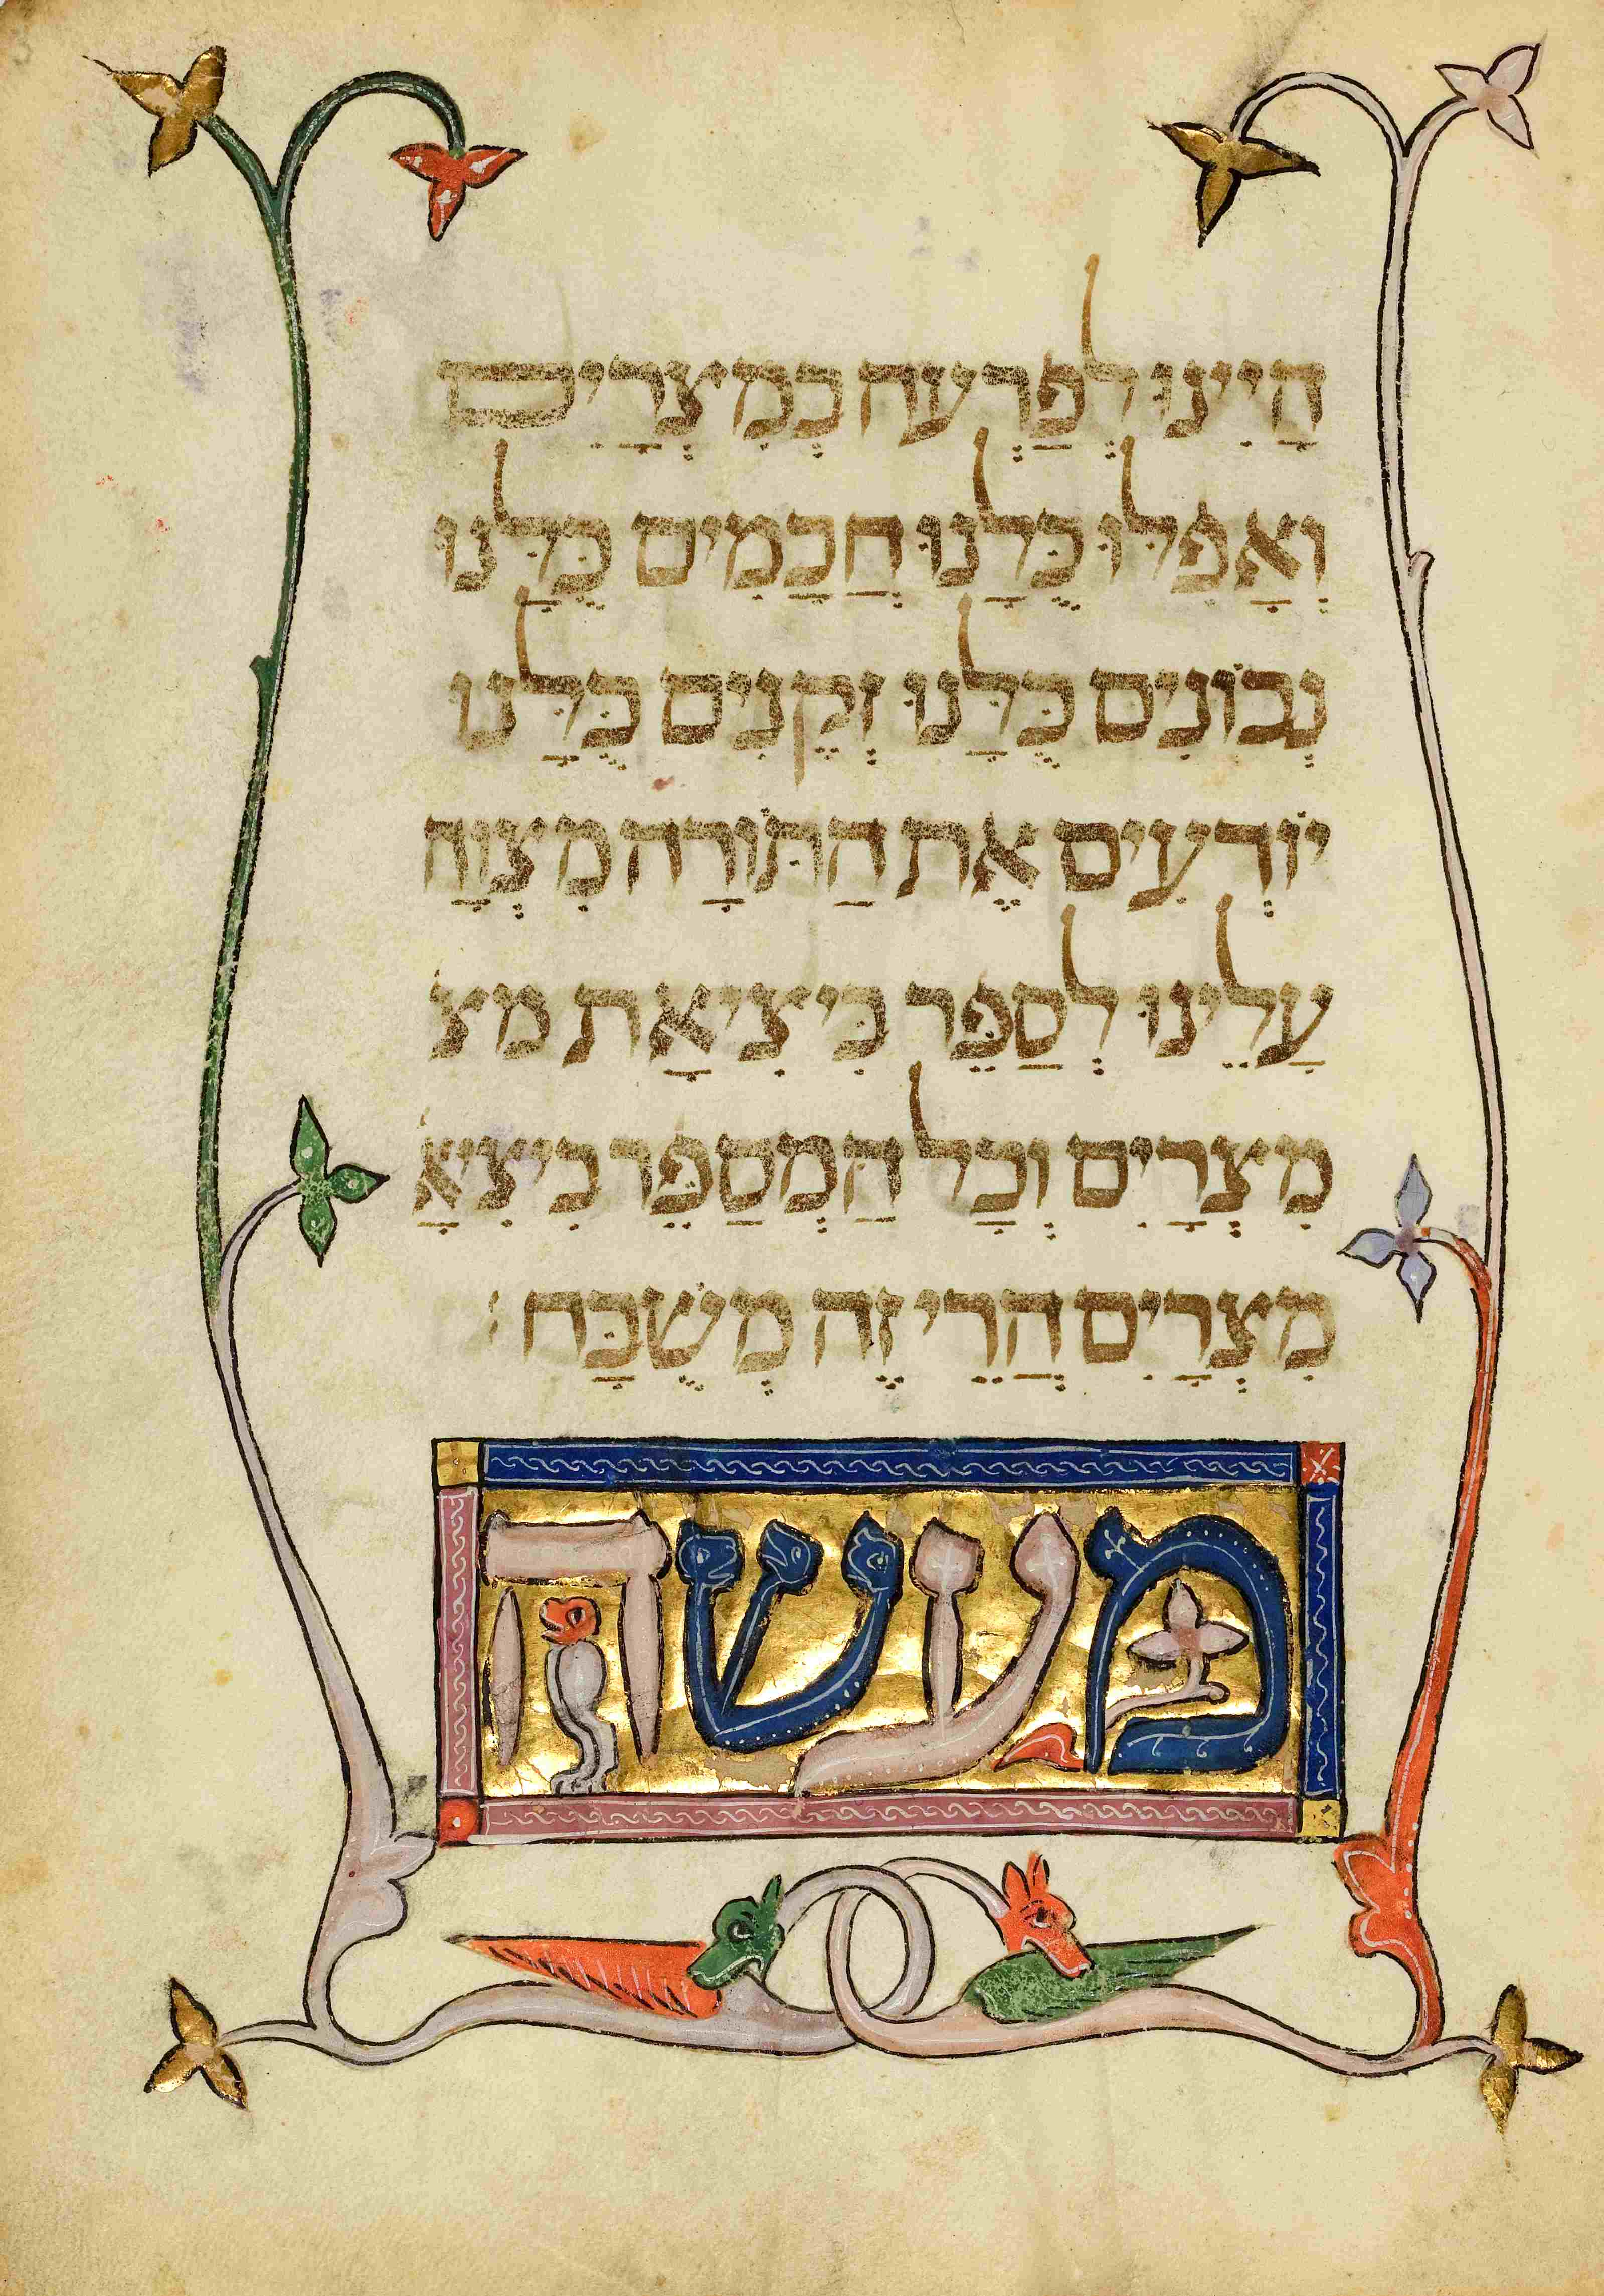 הָיִינוּ לְפַרְעֹה בְּמִצְרָיִם
וְאַפִלּוּ כֻּלָנוּ חֲכָמִים כֻּלָּנוּ
נְבוֹנִים כֻּלָּנוּ זְקֵנִים כֻּלָּנוּ
יוֹדְעִים אֶת הַתּוֹרָה מִצְוָה
עָלֵינוּ לְסַפֵּר בִּיצִיאָת מצ
מִצְרָיִם וְכָל הַמְסַפֵּר בִיצִיאָ
מִצְרָיִם הֲרֵי זֶה מְשֻׁבָּח :
מעשה